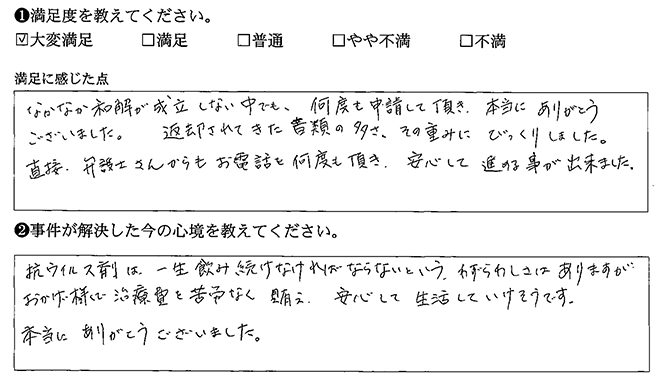 ❶満足度を教えてください。
☑大変満足 □満足 □普通 □やや不満 □不満
満足に感じた点
なかなか和解が成立しない中でも、何度も申請して頂き、本当にありがとう
ございました。 返却されてきた書類の多さ、その重みにびっくりしました。
直接、弁護士さんからもお電話を何度も頂き、安心して進める事が出来ました。
❷事件が解決した今の心境を教えてください。
抗ウイルス剤は、一生飲み続けなければならないという、わずらわしさはありますが
おかげ様で治療費を苦労なく賄え、安心して生活していけそうです。
本当にありがとうございました。